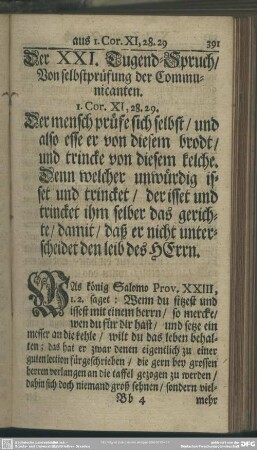 aus 1. Cor. XI, 28. 29 391
Der XXI. Tugend-Spruch/
Von selbstprüfung der Commu-
nicanten.
1. Cor. XI, 28. 29.
Der mensch prüfe sich selbst/ und
also esse er von diesem brodt/
und trincke von diesem kelche.
Denn welcher unwürdig is-
set und trincket/ der isset und
trincket ihm selber das gerich-
te/ damit/ daß er nicht unter-
scheidet den leib des HErrn.
WAs könig Salomo Prov. XXIII,
1. 2. saget: Wenn du sitzest und
issest mit einem herrn/ so mercke/
wen du für dir hast/ und setze ein
messer an die kehle/ wilt du das leben behal-
ten; das hat er zwar denen eigentlich zu einer
guten lection fürgeschrieben/ die gern bey grossen
herren verlangen an die taffel gezogen zu werden/
dahin sich doch niemand groß sehnen/ sondern viel-
Bb 4 mehr